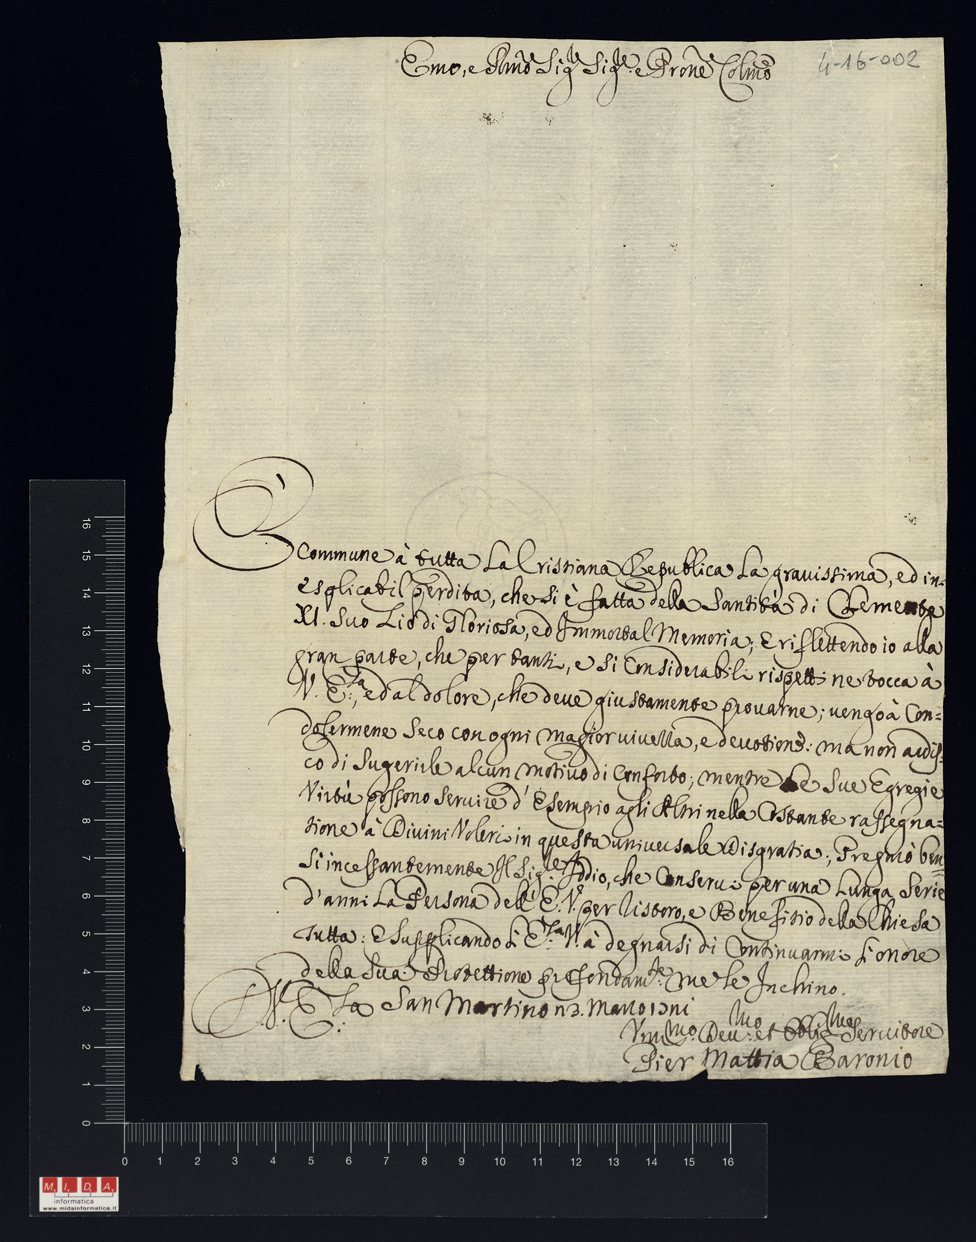 4-16-002
Emo, e Rmo Sig.r Sig.r e Prone Colmo
È
Commune à tutta La Cristiana Republica La gravissima, ed in=
esplicabil perdita, che si è fatta della Santità di Clemente
XI. Suo Zio di Gloriosa, ed Immortal Memoria; E riflettendo io alla
gran parte, che per tanti, e si Considerabili rispetti ne tocca à
V. E.za, ed al dolore, che deve giustamente provarne; vengo à Con=
dolermene Seco con ogni magior vivezza, e devotione: ma non ardis=
co di Sugerirle alcun motivo di Conforto; mentre Le Sue Egregie
Virtù possono Servire d'Esempio agli Altri nella Costante rassegna=
tione à Divini Voleri in questa universale Disgratia; Pregnò ben=
Si incessantemente Il Sig.re Iddio, che Conservi per una Lunga Serie
d'anni La Persona dell'E.V. per ristoro, e Benefitio della Chiesa
Tutta: E Supplicando L'E.za V. à degnarsi di Continuarmi L'onore
della Sua Protettione profondam.te me Le Inchino.
D. V. E.za San Martino
Vmmo. Dev.mo et Oblig.mo Servitore
Pier Mattia Baronio
16
15
14
13
12
11
10
9
8
7
6
5
4
3
2
1
0
0 1 2 3 4 5 6 7 8 9 10 11 12 13 14 15 16
M. I. D. A.
informatica
www.midainformatica.it